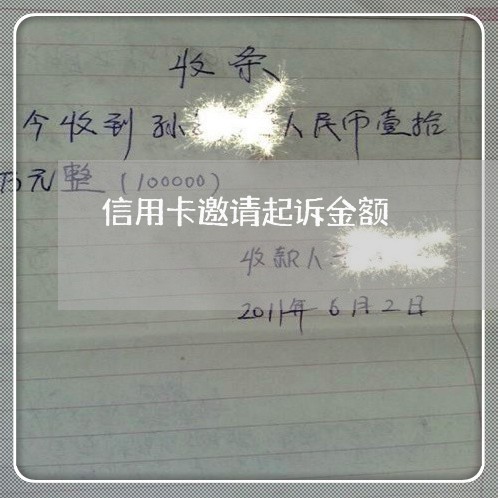 收条
今收到孙 人民币壹拾
万元整（100000）
信用卡邀请起诉金额
收款人
2011年6月2日